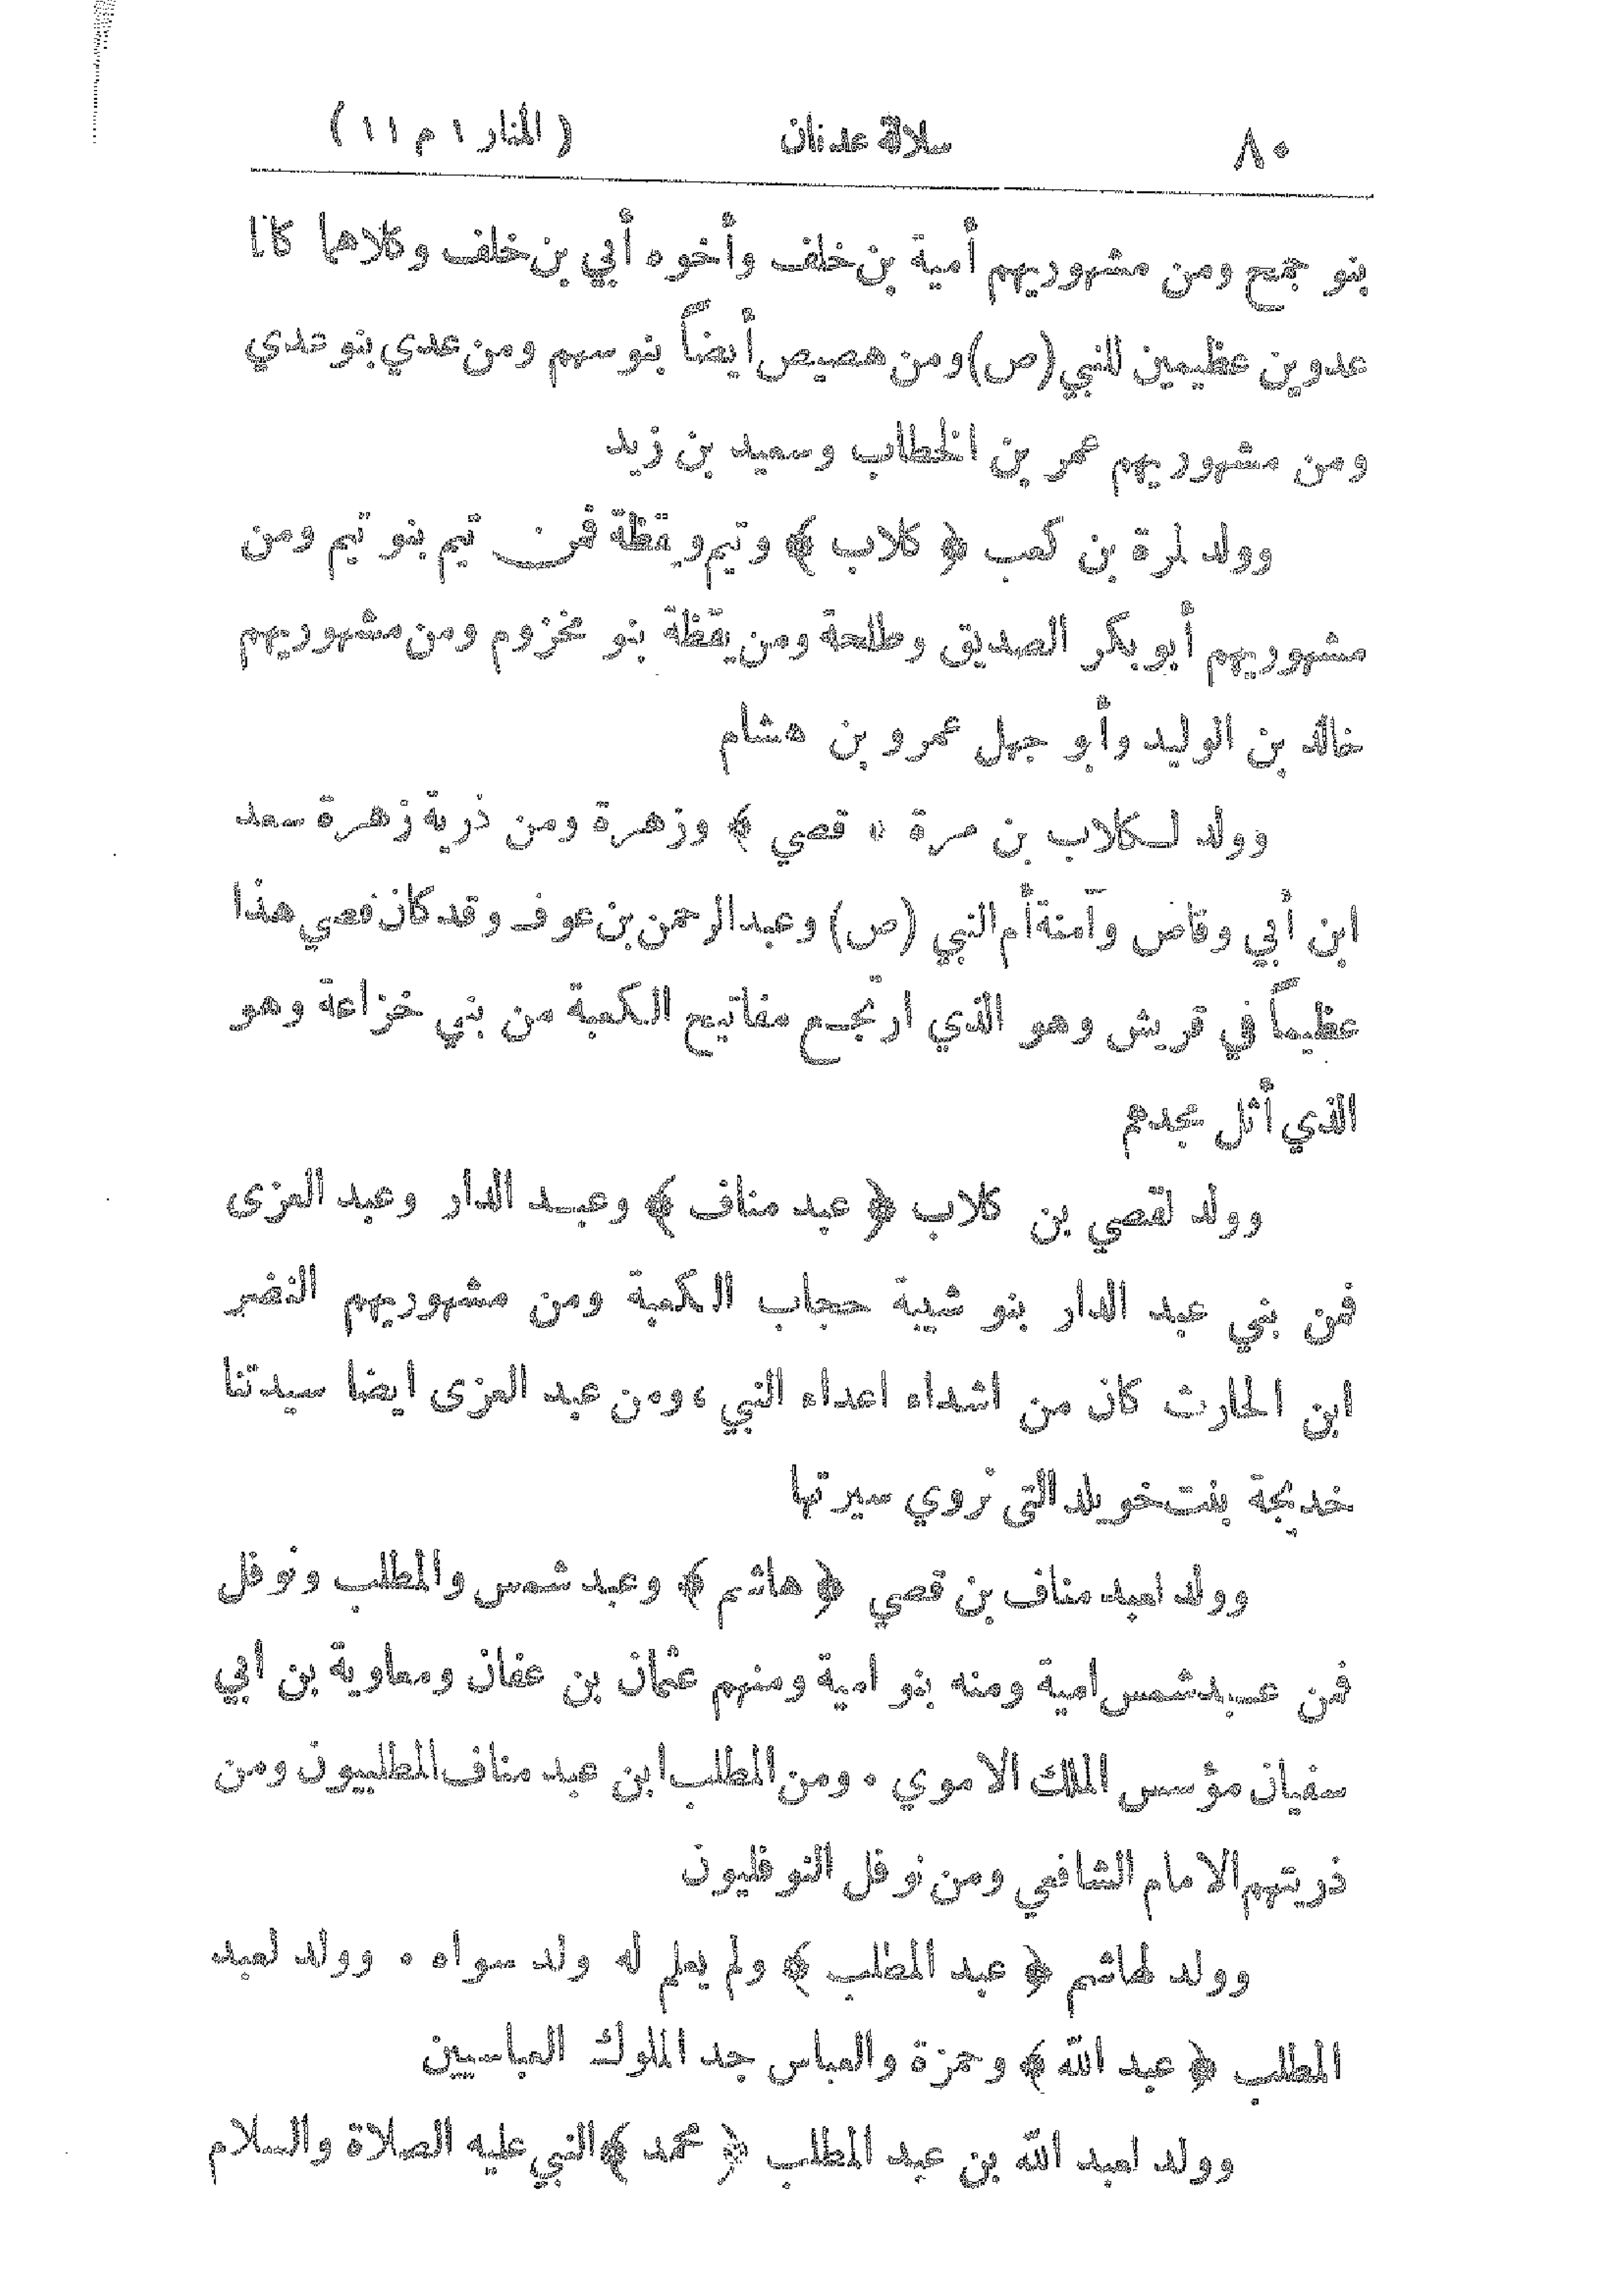 ٨٠ سلالة عدنان ( المنار ١ م ١١ )
بنو جمح ومن مشهوريهم أمية بن خلف وأخوه أبي بن خلف وكلاهما كانا
عدوين عظيمين للنبي (ص) ومن هصيص أيضاً بنو سهم ومن عدي بنو عدي
ومن مشهوريهم عمر بن الخطاب وسعيد بن زيد
وولد لمرة بن كعب ﴿ كلاب ﴾ وتيم ويقظة فمن تيم بنو تيم ومن
مشهوريهم أبو بكر الصديق وطلحة ومن يقظة بنو مخزوم ومن مشهوريهم
خالد بن الوليد وأبو جهل عمرو بن هشام
وولد لكلاب بن مرة ﴿ قصي ﴾ وزهرة ومن ذرية زهرة سعد
ابن أبي وقاص وآمنة أم النبي (ص) وعبد الرحمن بن عوف وقد كان قصي هذا
عظيماً في قريش وهو الذي ارتجع مفاتيح الكعبة من بني خزاعة وهو
الذي أثل مجدهم
وولد لقصي بن كلاب ﴿ عبد مناف ﴾ وعبد الدار وعبد العزى
فمن بني عبد الدار بنو شيبة حجاب الكعبة ومن مشهوريهم النضر
ابن الحارث كان من اشداء اعداء النبي ، ومن عبد العزى ايضا سيدتنا
خديجة بنت خويلد التى نروي سيرتها
وولد لعبد مناف بن قصي ﴿ هاشم ﴾ وعبد شمس والمطلب ونوفل
فمن عبد شمس امية ومنه بنو امية ومنهم عثمان بن عفان ومعاوية بن ابي
سفيان مؤسس الملك الاموي . ومن المطلب ابن عبد مناف المطلبيون ومن
ذريتهم الامام الشافعي ومن نوفل النوفليون
وولد لهاشم ﴿ عبد المطلب ﴾ ولم يعلم له ولد سواه . وولد لعبد
المطلب ﴿ عبد الله ﴾ وحمزة والعباس جد الملوك العباسيين
وولد لعبد الله بن عبد المطلب ﴿ محمد ﴾ النبي عليه الصلاة والسلام